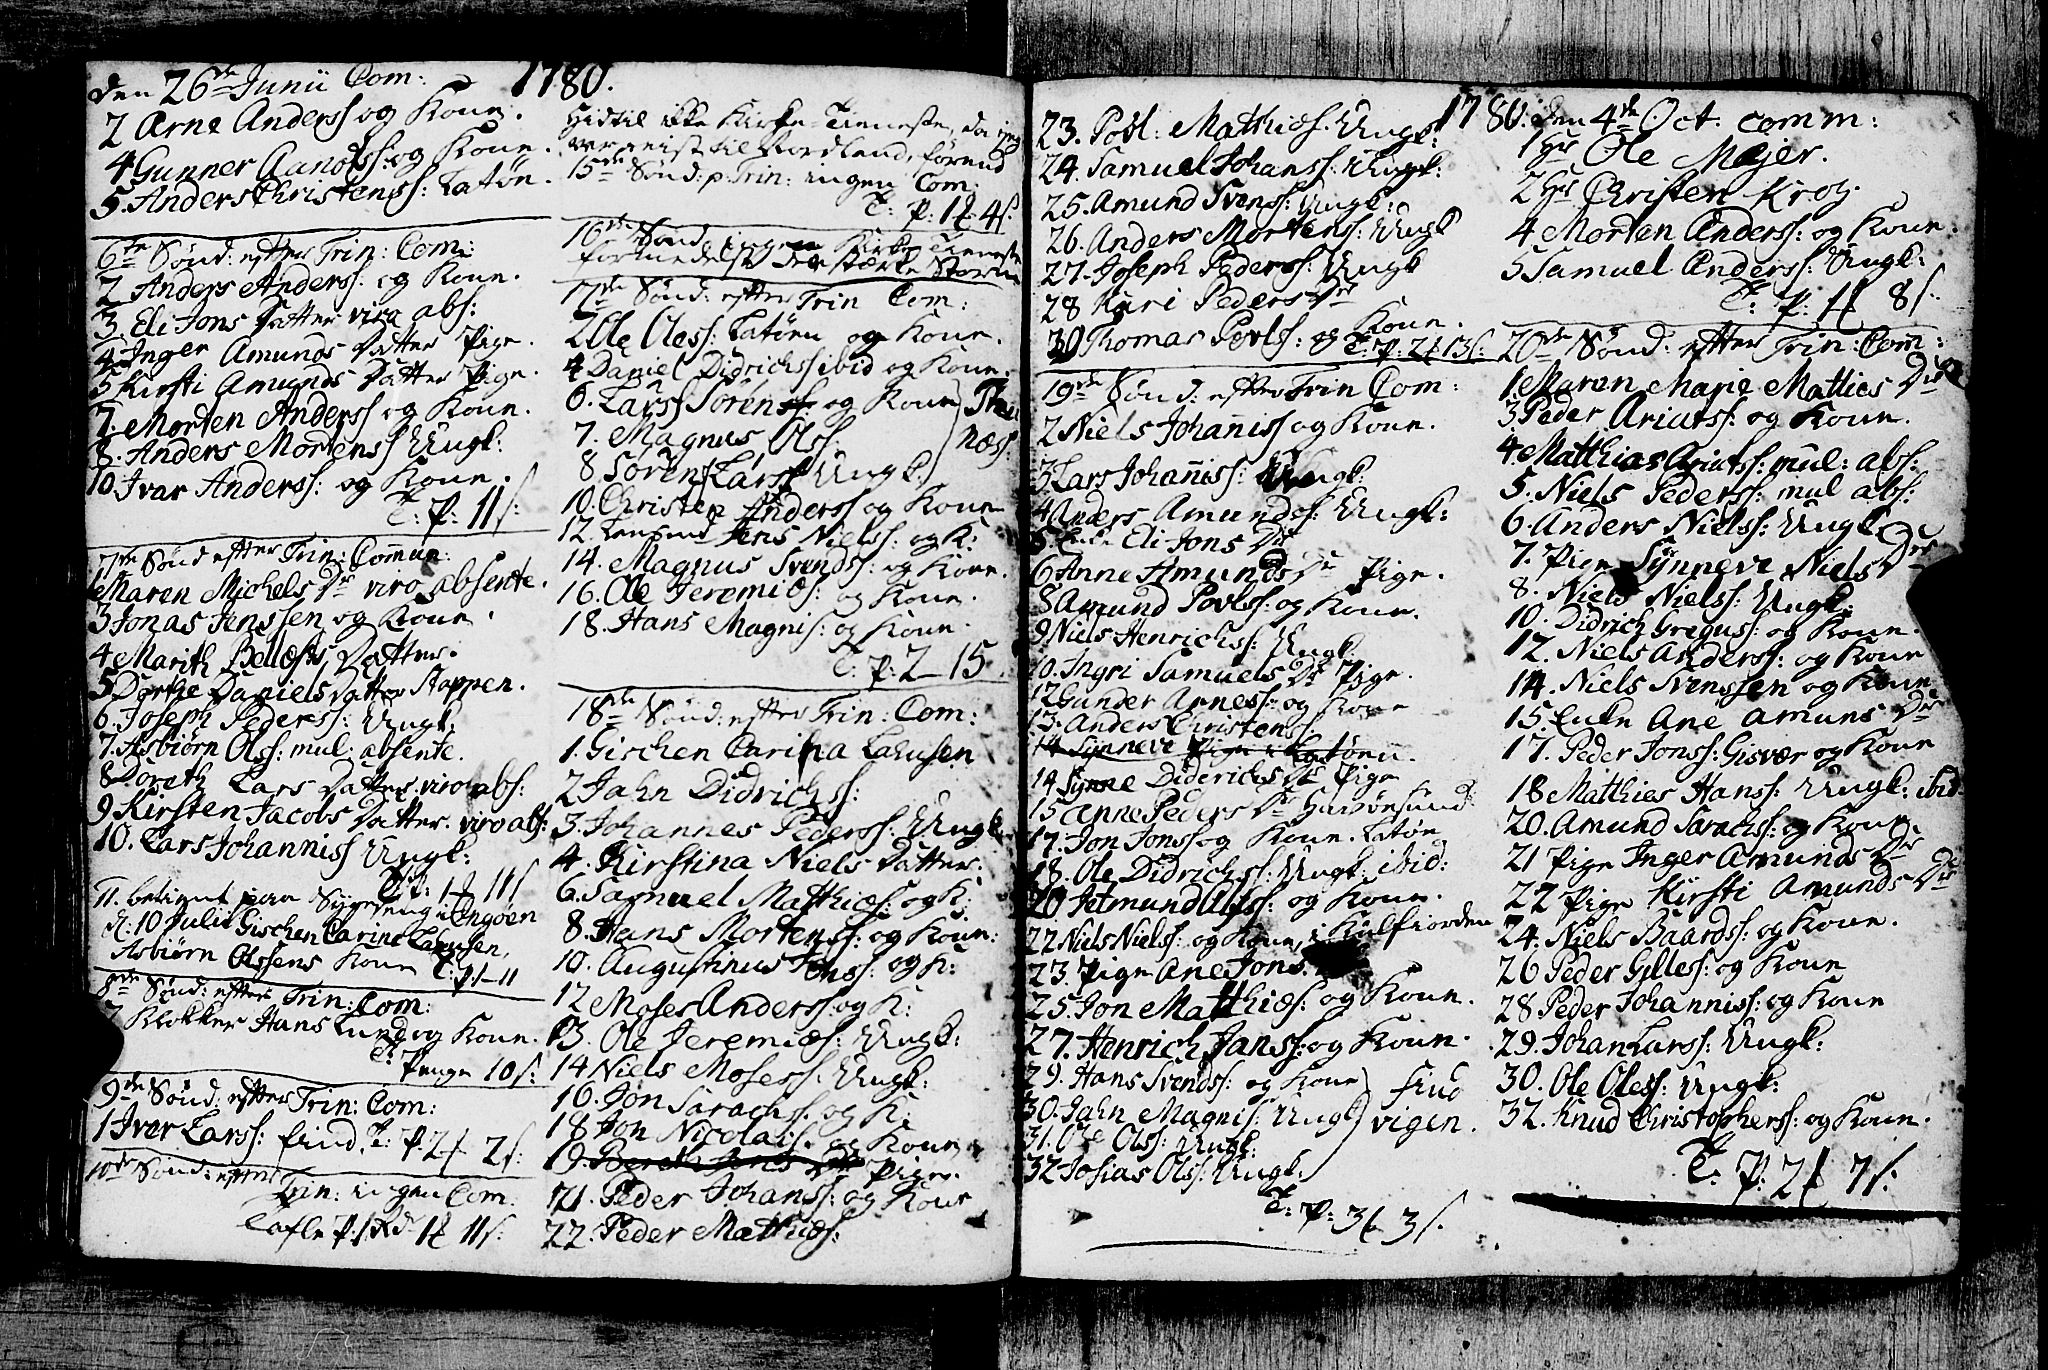 1780.
den 26de Junii Com:
2 Arne Anderss og Kone.
4 Gunner Aanolss: og Kone.
5. Anders Christenss: Latøn.
6te Sønd: efter Trin: Com:
2 Anders Anderss: og Kone.
3. Eli Jons Datter viro abs:
4 Inger Amunds Datter Pige.
5 Kirsti Amunds Datter Pige.
7. Morten Anderss og Kone.
8. Anders Mortenss Ungk:
10. Ivar Anderss: og Kone.
T: P: 11 s:
7de Sønd efter Trin: Commun:
1 Maren Michels Dr viro absente.
3 Jonas Jenssen og Kone.
4 Marith Datter.
5 Dorthe Daniels Datter Stappen.
6. Joseph Pederss: Ungk:
7. Asbiørn Olss: mul: absente.
8 Doreth Lars Datter. viro abs:
9 Kirsten Jacobs Datter. viro abs:
10. Lars Johanniss Ungk:
11. betient paa Sygeseng i Ingøen
d: 10 Julii Gischen Carine Lausen,
Asbiørn Olssens Kone T: P 1-11
8de Sønd: efter Trin: Com:
2 Klokker Hans Lund og Kone.
T: Penge 10 s:
9de Sønd: efter Trin: Com:
1 Iver Larss: Find. T: P: 2 2 s:
10de Sønd: efter
Trin: ingen Com:
Tafle P: 1 Rd 1 11 s:
Hidtil ikke Kirke-Tieneste, da jeg
var reist til Nordland, førend
15de Sønd: p: Trin: ingen Com:
T: P: 1 4 s:
16de Sønd ingen Kirke Tieneste
formedelst den stærke Storm
17de Sønd: efter Trin Com:
2 Ole Oless: Latøen og Kone.
4 Daniel Didrichss ibid og Kone.
6. Larss Sørenss og Kone
7. Magnus Olss:
8 Sørenss Larss Ungk:
næss:
10. Christen Anderss og Kone
12. Jens Nielss: og K:
14. Magnus Svendss: og Kone.
16. Ole Jeremiæs: og Kone.
18. Hans Magnis: og Kone.
T: P: 2 - 15
18de Sønd: efter Trin: Com:
1. Gischen Carina Lausen
2 Jahn Didrichss:
3. Johannes Pederss: Ungk
4. Kirstina Niels Datter.
6. Samuel Matthiæs: og K:
8. Hans Mortenss: og Kone:
10. Augustinus Jenss: og K:
12 Moses Anderss og K:
13. Ole Jeremiæs: Ungk:
14 Niels Mosess. Ungk:
16. Jon Sarachss. og K:
18 Jon Nicolais: og Kone
19. Bereth Jens Dr Pige.
21. Peder Johanss: og Kone
22. Peder Mathiæs:
1780.
23. Povl: Mathiæs. Ungk:
24. Samuel Johanss: Ungk:
25. Amund Svenss: Ungk:
26. Anders Mortenss: Ungk
27. Joseph Pederss: Ungk
28 Kari Peders Dr
30 Thomas Povlss: og Kone.
T: P: 2 13 s:
19de Sønd: efter Trin Com:
2 Niels Johaniss og Kone.
3 Lars Johañiss: Ungk:
4 Anders Amundss: Ungk:
5. Enke Eli Jons Dr
6 Anne Amunds Dr Pige.
8 Amund Povlss: og Kone.
9 Niels Henrichss: Ungk:
10. Ingri Samuels Dr Pige.
12 Gunder Arness: og Kone
13. Anders Christenss:
14 Synneve Pige i Latøen.
14 Synne Diderichs Dr Pige
15 Anne Peders Dr Havøesund:
17. Jon Jonss og Kone. Latøn
18. Ole Didrichss: Ungk: ibid:
20 Jetmund Olss: og Kone.
22 Niels Nielss: og Kone, i Kulfiorden
23. Pige Ane Jons.
25. Jon Matthiæs: og Kone.
27. Henrich Janss: og Kone.
29. Hans Svendss: og Kone
30. Jahn Magnis: Ungk
31. Ole Olss: Ungk:
32 Josias Olss: Ungk:
vigen.
T: P: 3 3 s.
den 4de Oct. comm:
1 Hr Ole Mejer.
2 Hr Christen Krog.
4 Morten Anderss: og Kone:
5 Samuel Anderss: Ungk:
T: P: 1 8 s:
20de Sønd: efter Trin: Com:
1. Maren Marie Matties Dr
3 Peder Ariatss: og Kone.
4 Matthias Ariatss: mul: abs:
5. Niels Pederss: mul abs:
6. Anders Nielss: Ungk:
7. Pige Synneve Niels Dr
8. Niels Nielss: Ungk:
10. Didrich Greguss: og Kone.
12. Niels Anderss: og Kone
14. Niels Svenssen og Kone
15. Enke Ane Amuns Dr
17. Peder Jonss: Gisvær og Kone
18 Matthies Hanss: Ungk: ibid
20. Amund Sarachss: og Kone.
21 Pige Inger Amunds Dr
22 Pige Kirsti Amunds Dr
24. Niels Baardss: og Kone.
26 Peder Gilless: og Kone
28 Peder Johanniss: og Kone
29. Johan Larss: Ungk:
30. Ole Oless: Ungk:
32. Knud Christopherss: og Kone.
T: P: 2 7 s: